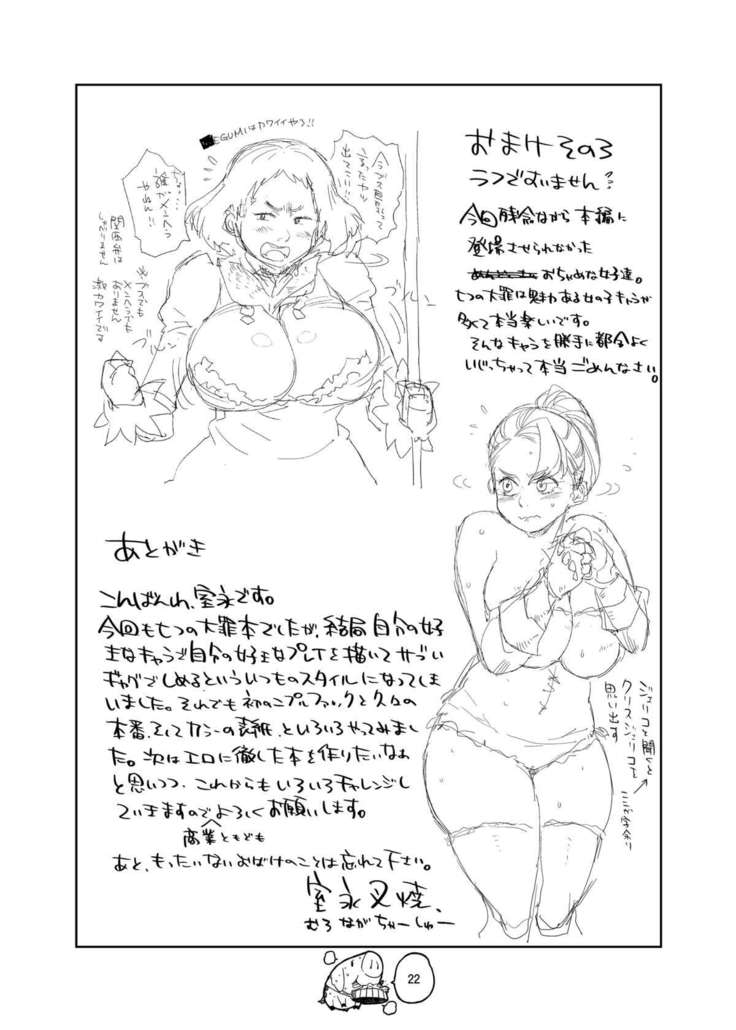 おまけその3
ラフですいません
今回残念ながら本編に
登場させられなかった
おちゃめな女子達。
七つの大罪は魅力ある女の子キャラが
多くて本当楽しいです。
そんなキャラを勝手に都合よく
いじっちゃって本当ごめんなさい。
EGUMIはカワイイやろ!!
誰がメンヘラ
やねん!!
関西弁は
しゃべりません
※ブスでも
メンヘラでも
おりません
カワイイです
ジェリコと聞くと
クリスジェリコを
思い出す
あとがき
こんばんわ、室永です。
今回も七つの大罪本でしたが、結局自分の好
きなキャラで自分の好きなプレイを描いてサブい
ギャグでしめるといういつものスタイルになってしま
いました。それでも初のニプルファックと久々の
本番、そしてカラーの表紙、といろいろやってみまし
た。次はエロに徹した本を作りたいなぁ
と思いつつ、これからもいろいろチャレンジし
ていきますのでよろしくお願いします。
商業ともども
あと、もったいないおばけのことは忘れて下さい。
室永叉焼、
むろながちゃーしゅー
22